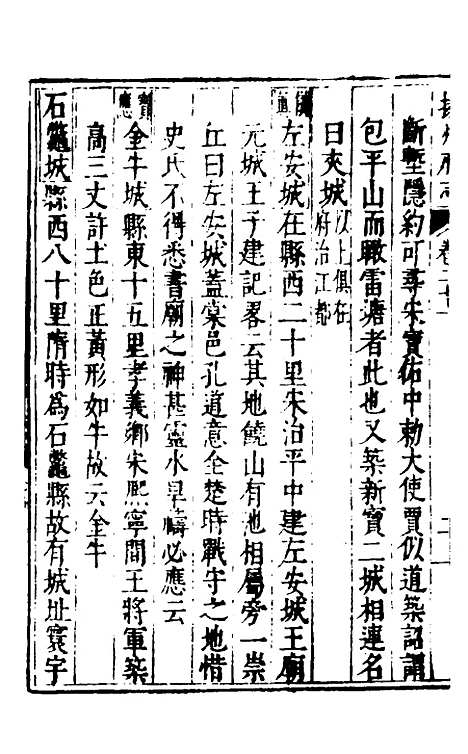 揚州府志 卷二十
斷塹隱約可尋宋寶佑中勅大使賈似道築詔謂
包平山而瞰雷塘者此也又築新寶二城相連名
曰夾城以上俱在府治江都
儀眞
左安城在縣西二十里宋治平中建左安城王廟
元城王子建記畧云其地饒山有池相屬旁一崇
丘曰左安城蓋棠邑孔道意全楚時戰守之地惜
史氏不得悉書廟之神甚靈水旱禱必應云
寶應
金牛城縣東十五里孝義鄉宋熙寧間王將軍築
高三丈許土色正黃形如牛故云金牛
石鼈城縣西八十里隋時爲石鼈縣故有城址寰宇